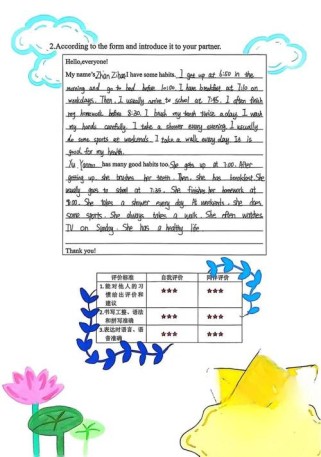 2.According to the form and introduce it to your partner.
Hello,everyone!
My name's Zhan Zihao I have some habits. I get up at 6:50 in the
morning and go to bed before 10:00. I have breakfast at 7:10 on
weekdays. Then, I usually come to school at 7:45. I often finish
my homework before 8:30. I brush my teeth twice a day. I wash
my hands carefully. I take a shower every evening. I usually
do some sports at weekends. I take a walk every day. It is
good for my health.
has many good habits too. She gets up at 7:00. After
getting up, she brushes her teeth. Then, she has breakfast. She
usually goes to school at 7:35. She finishes her homework at
8:00. She takes a shower every day. At weekends, she does
some sports. She always takes a walk. She often watches
TV on Sunday. She has a healthy life.
Thank you!
评价标准 自我评价 同伴评价
1.能对他人的习
惯给出评价和
建议
★★★ ★★★
2.书写工整、语法
和拼写准确
★★★ ★★★
3.表达时语言、语
音准确
★★★ ★★★